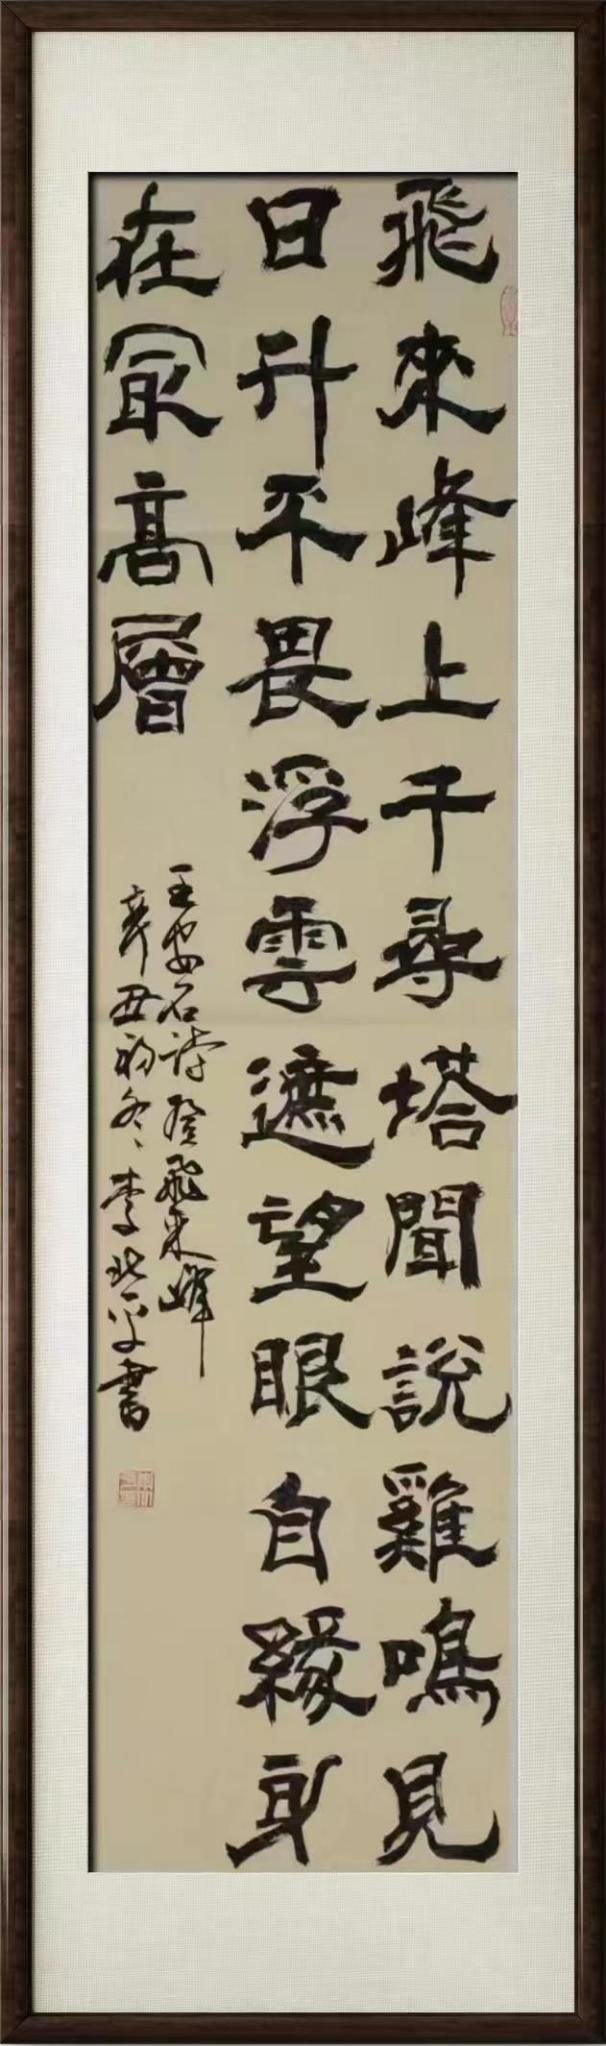 飛來峰上千尋塔聞說雞鳴見
日升不畏浮雲遮望眼自緣身
在冣高層
王安石詩登飛来峰
辛丑初冬李書